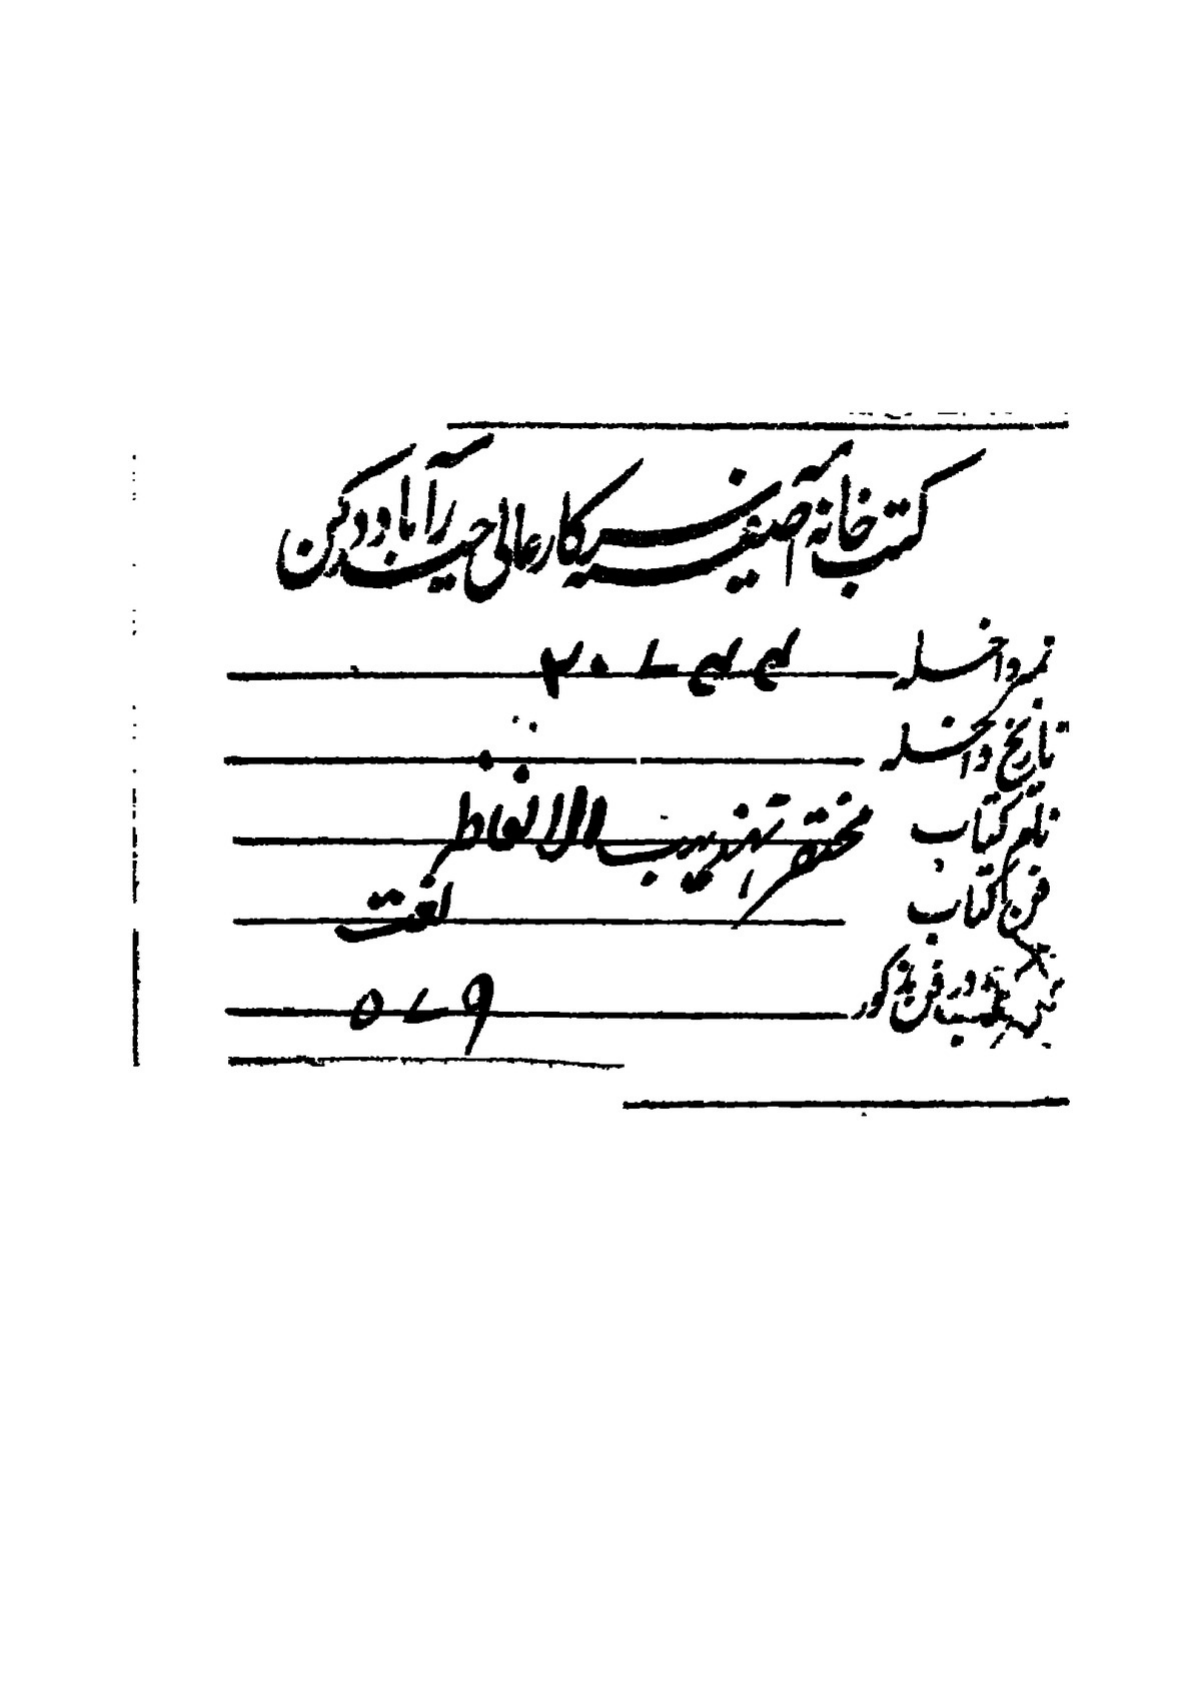 کتب خانہ آصفیہ سرکار عالی حیدرآباد دکن
نمبر داخلہ
تاریخ داخلہ
نام کتاب مختصر تہذیب الالفاظ
فن کتاب لغت
در فن مذکور ۵۷۹